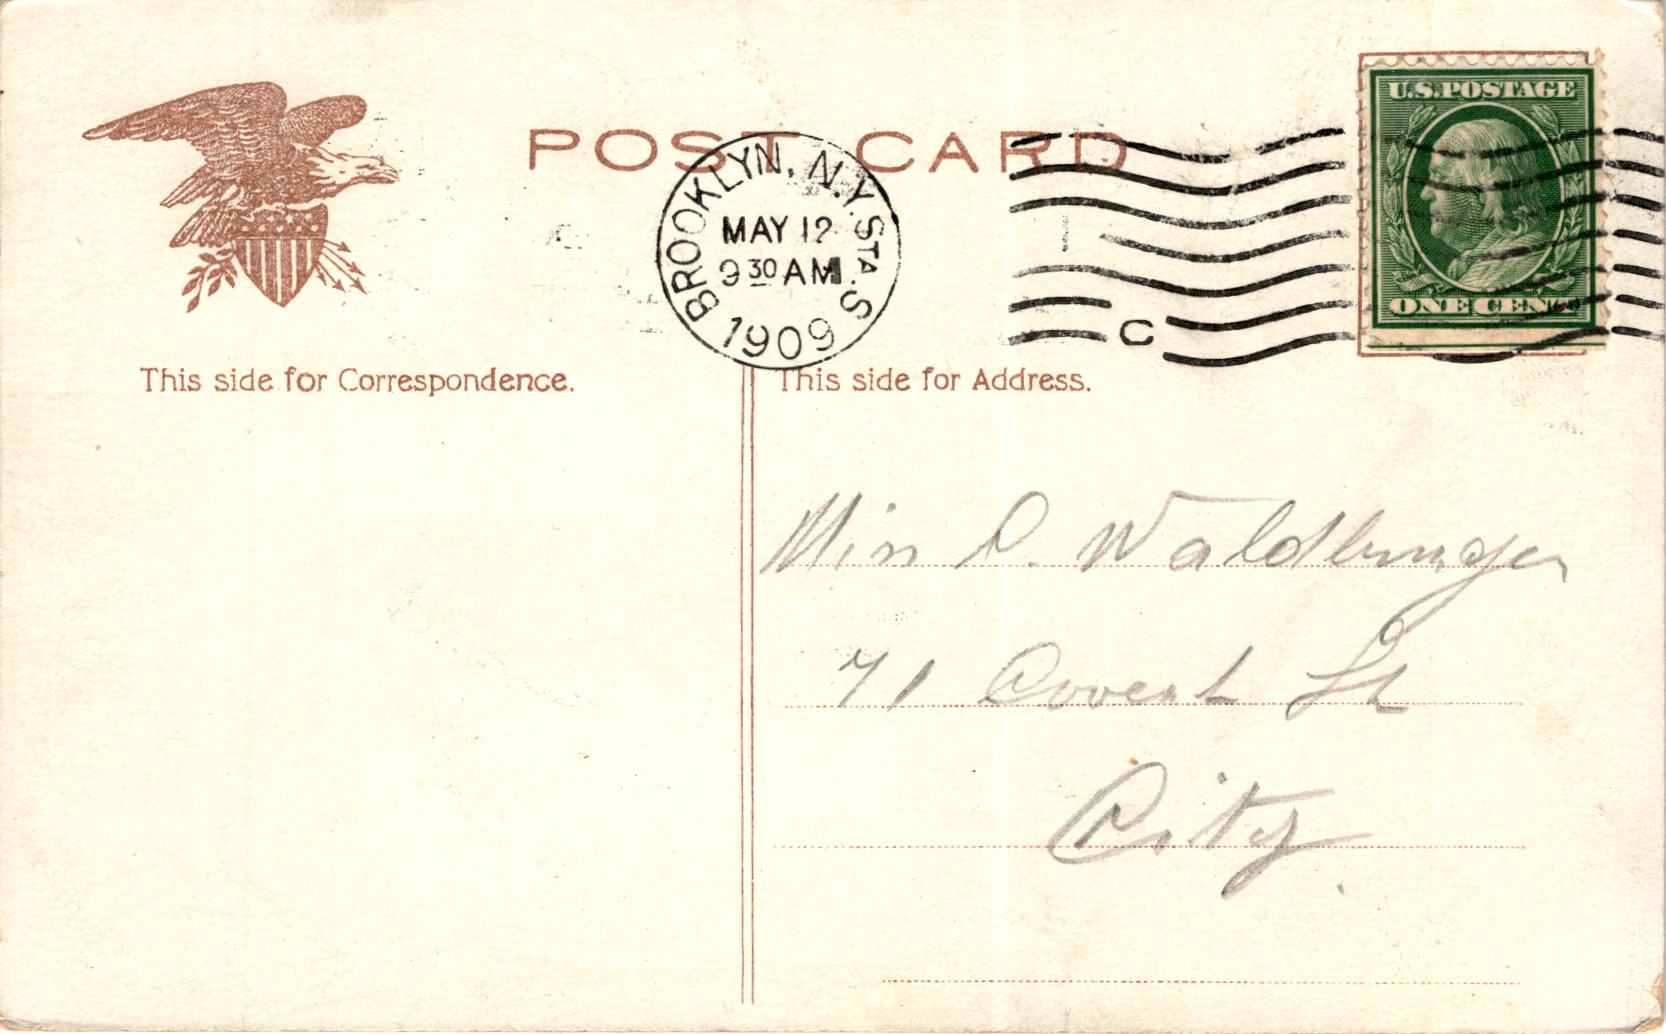 POST CARD
BROOKLYN, N.Y. STA. S
MAY 12
9 30 AM
1909
C
U.S. POSTAGE
ONE CENT
This side for Correspondence.
This side for Address.
Miss D. Waldburger
71 Covert St
City